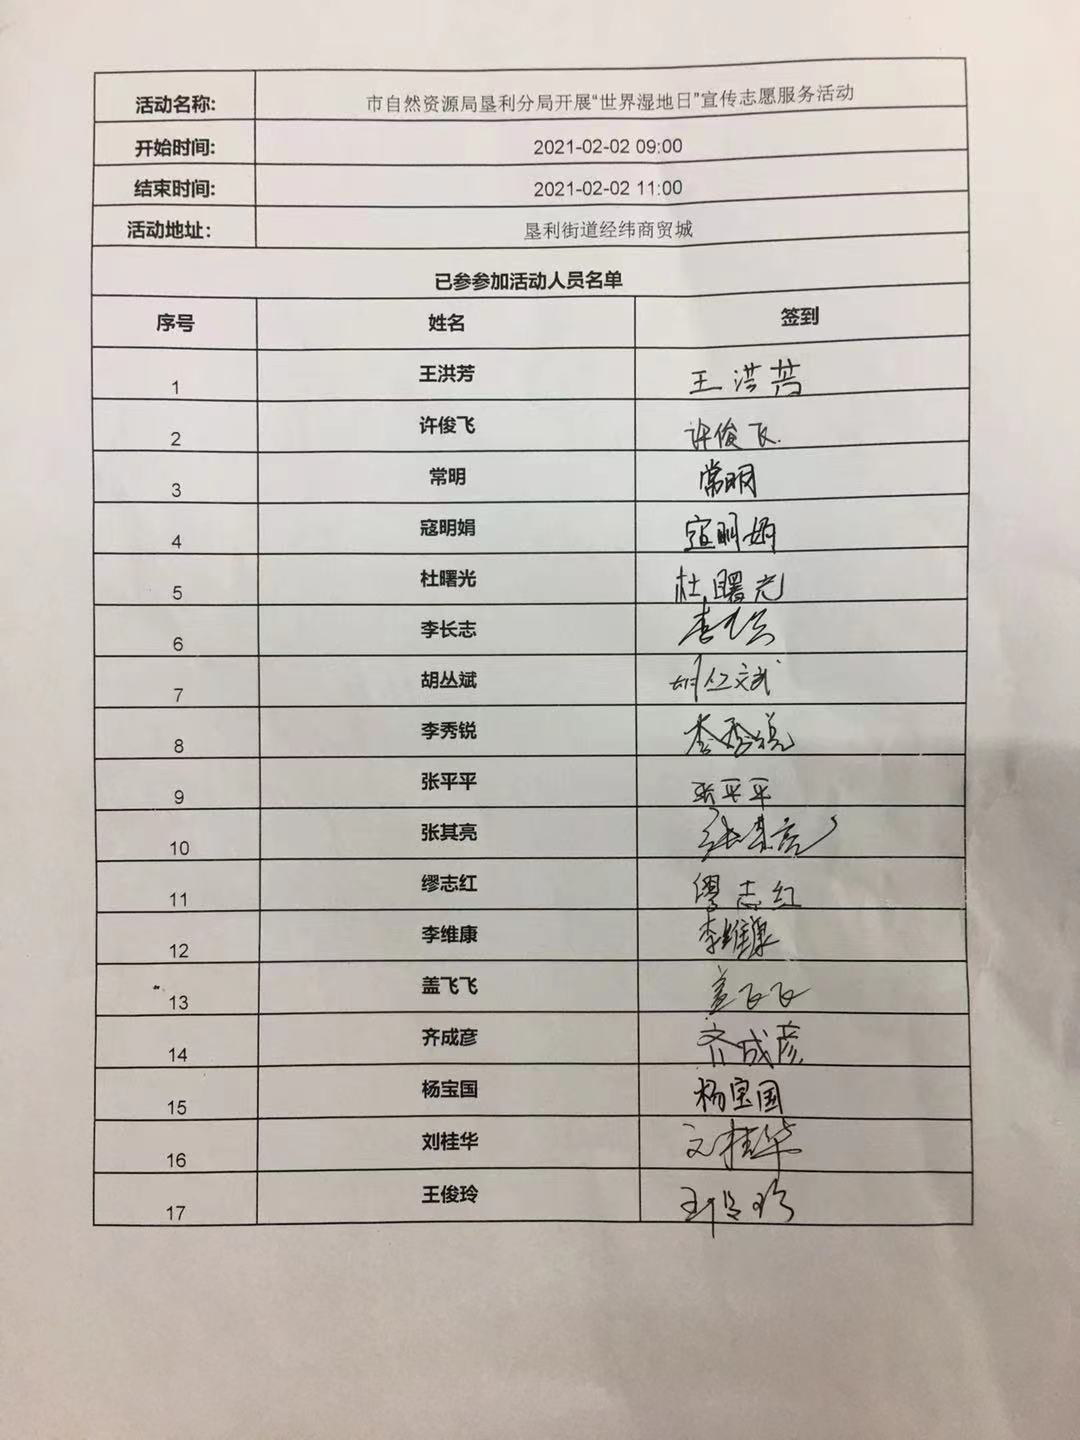 活动名称: 市自然资源局垦利分局开展“世界湿地日”宣传志愿服务活动
开始时间: 2021-02-02 09:00
结束时间: 2021-02-02 11:00
活动地址: 垦利街道经纬商贸城
已参参加活动人员名单
序号 姓名 签到
1 王洪芳 王洪芳
2 许俊飞 许俊飞
3 常明 常明
4 寇明娟 寇明娟
5 杜曙光 杜曙光
6 李长志 李长志
7 胡丛斌 胡丛斌
8 李秀锐 李秀锐
9 张平平 张平平
10 张其亮 张其亮
11 缪志红 缪志红
12 李维康 李维康
13 盖飞飞 盖飞飞
14 齐成彦 齐成彦
15 杨宝国 杨宝国
16 刘桂华 刘桂华
17 王俊玲 王俊玲